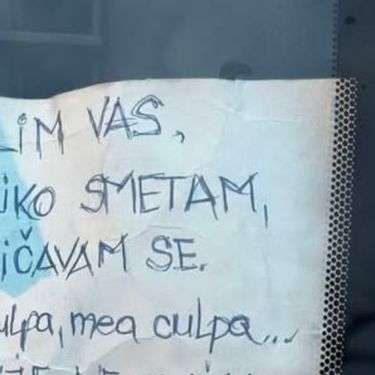 LIM VAS,
IKO SMETAM,
IČAVAM SE.
ulpa, mea culpa...